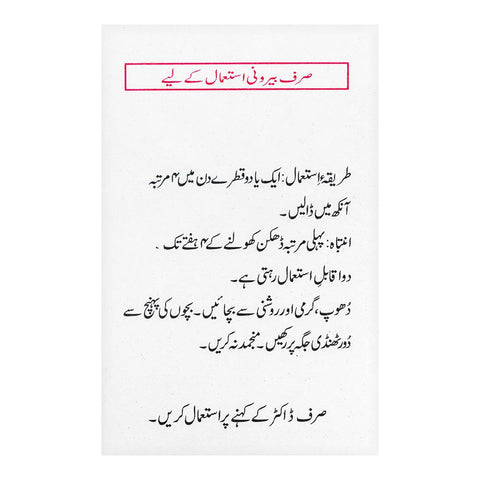 صرف بیرونی استعمال کے لیے
طریقۂ اِستعمال: ایک یا دو قطرے دن میں ۴ مرتبہ
آنکھ میں ڈالیں۔
انتباہ: پہلی مرتبہ ڈھکن کھولنے کے ۴ ہفتے تک
دوا قابلِ استعمال رہتی ہے۔
دُھوپ، گرمی اور روشنی سے بچائیں۔ بچوں کی پہنچ سے
دُور ٹھنڈی جگہ پر رکھیں۔ منجمد نہ کریں۔
صرف ڈاکٹر کے کہنے پر استعمال کریں۔